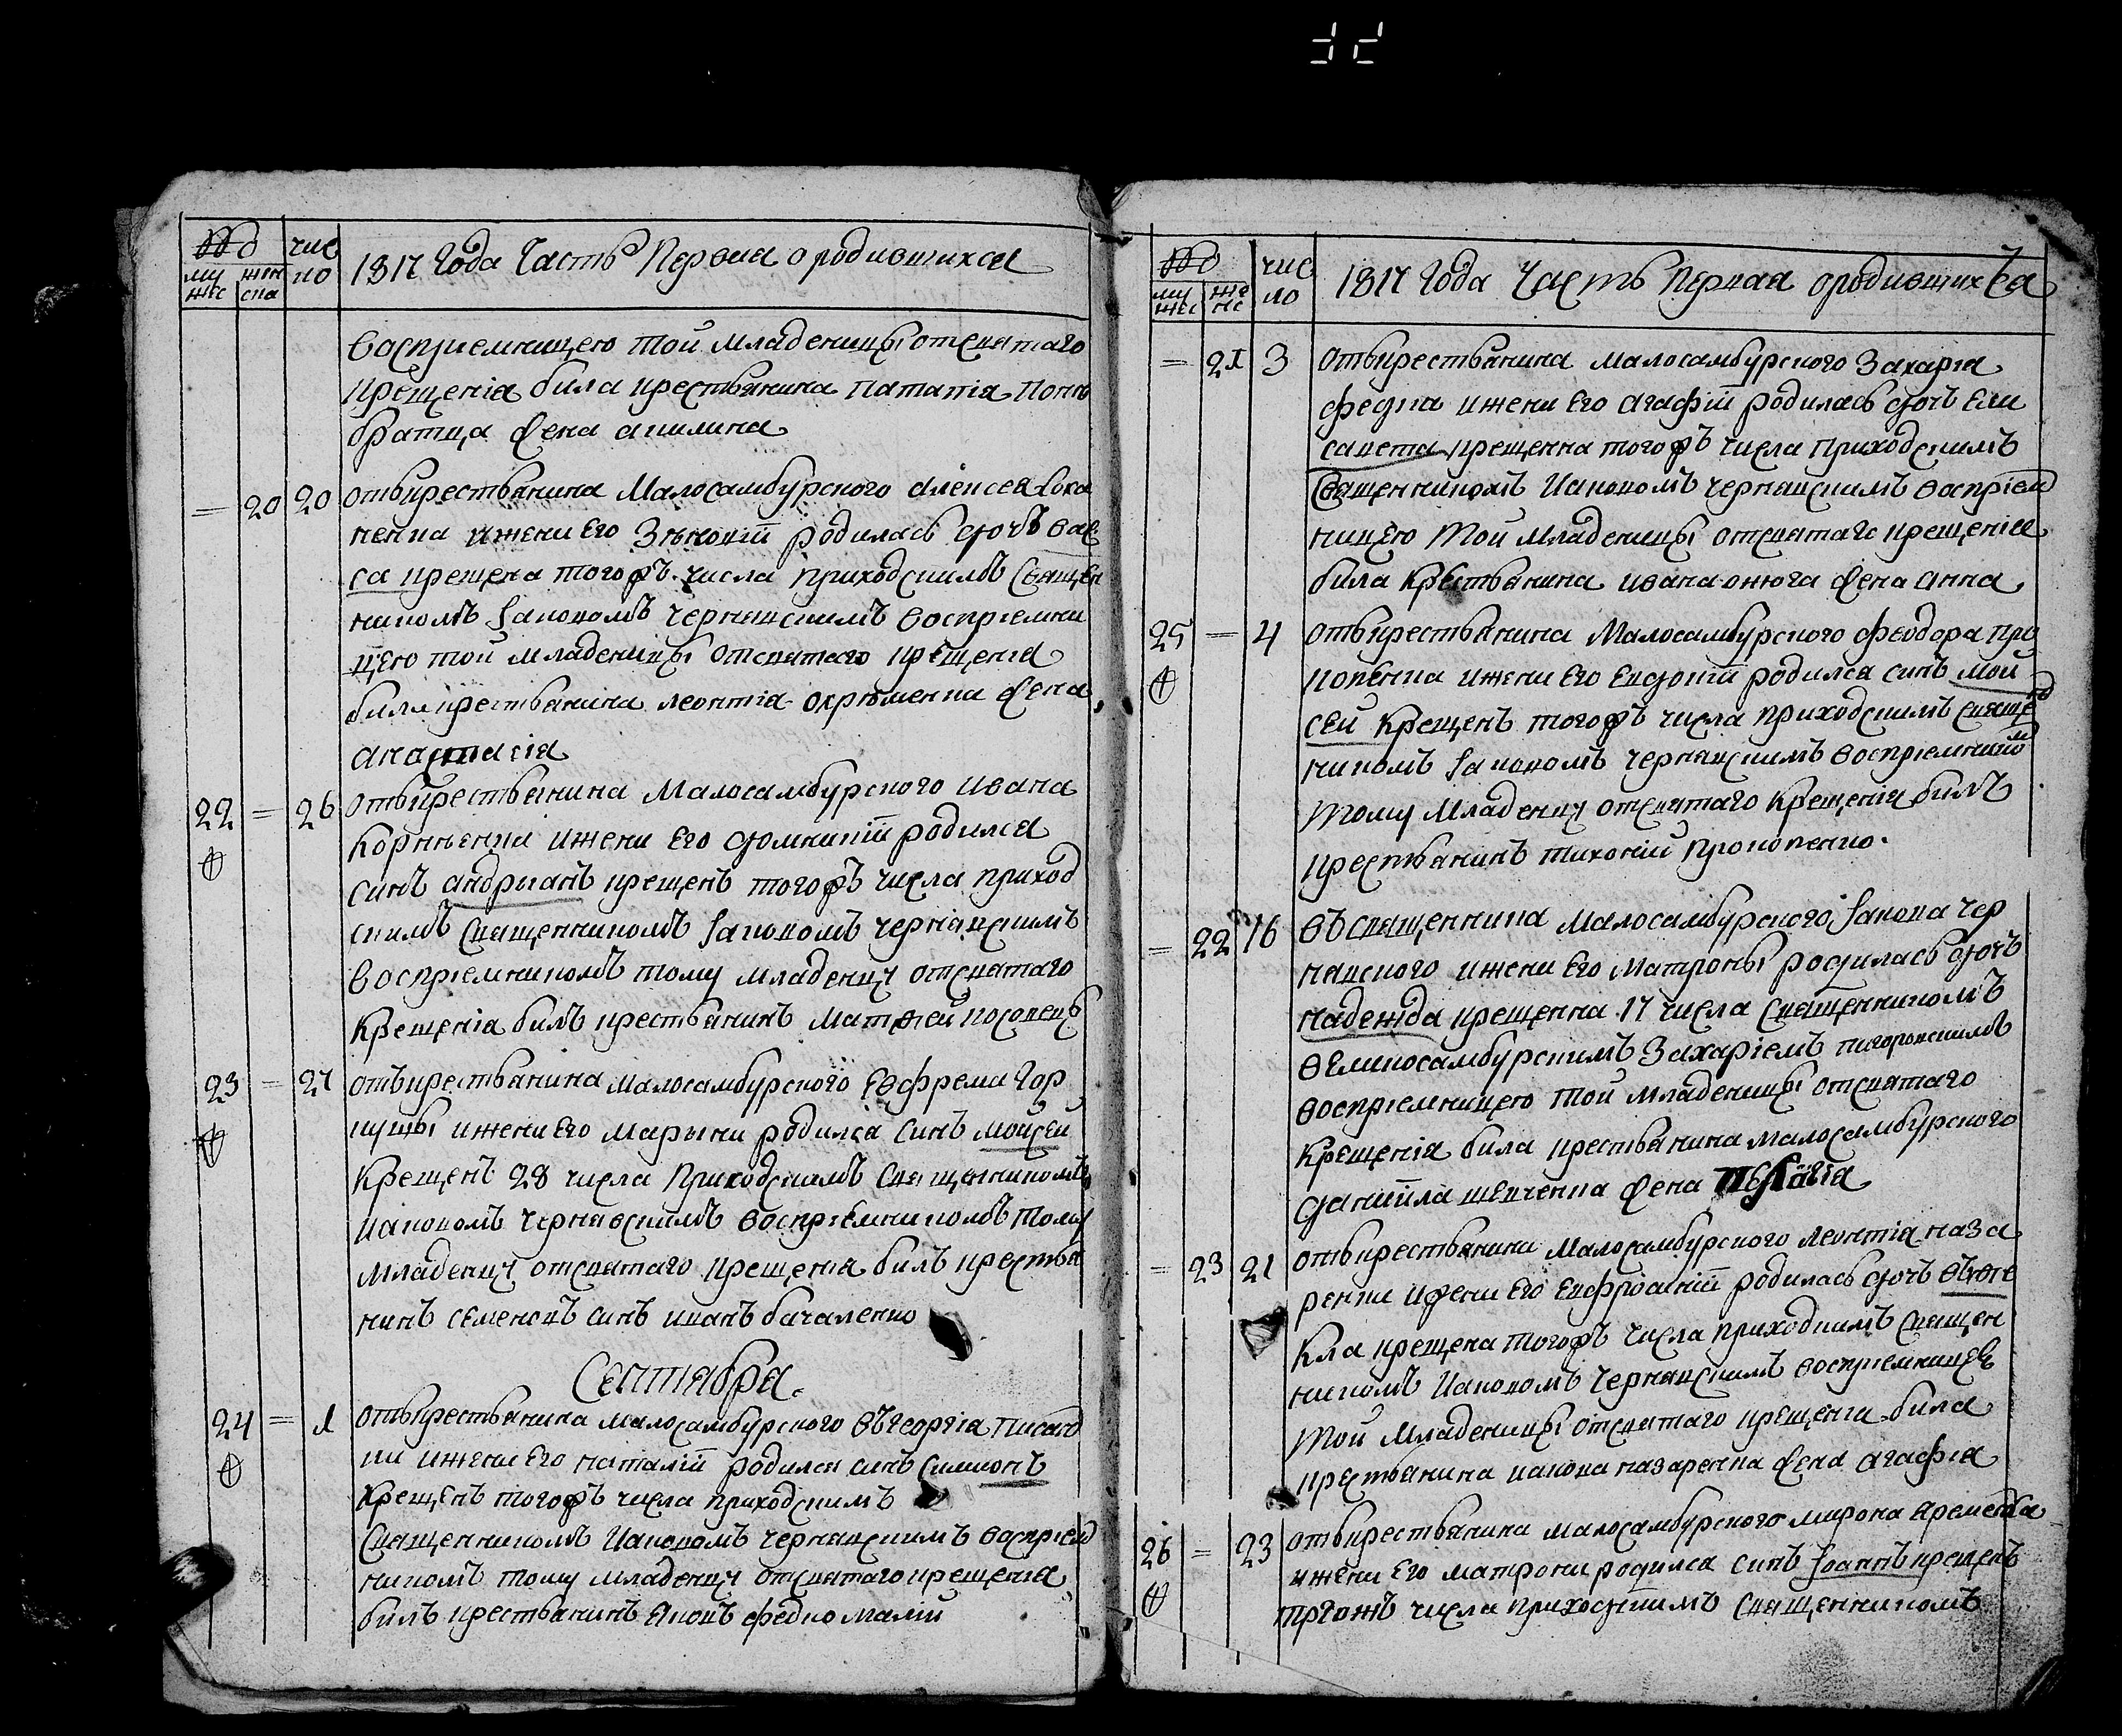 чис
муж женск ло
1817 Года Часть Первая о родившихся
воспріемницею той младеницы отсвятаго
крещенія била крестьянина
братца жена акилина
= 20 20 отъкрестьянина Малосамбурского Алексея
ненка ижени Его Зѣновіи родилась дочь вас
са крещена тогожъ числа приходскимъ Священ
никомъ Іаковомъ чернявскимъ воспріемни
цею той младеницы отсвятаго крещенія
била крестьянина леонтіа охрѣменка жена
анастасіа
22 = 26 отъкрестьянина Малосамбурского Ивана
Корнѣенка ижени Его домникіи родился
синъ андрианъ крещенъ тогожъ числа приход
скимъ Священникомъ Іаковомъ чернявскимъ
воспріемникомъ тому младенцу отсвятаго
Крещеніа билъ крестьянинъ Матѳей косовецъ
23 = 27 отъкрестьянина малосамбурского Евфрема Гор
кушы ижени Его Марыни родился синъ моѵсей
Крещенъ 28 числа Приходскимъ Священникомъ
иаковомъ чернявскимъ воспріемникомъ тому
младенцу отсвятаго крещеніа билъ крестья
нинъ семеновъ синъ иванъ бачаленко
Сентября.
24 = 1 отъкрестьянина малосамбурского Георгіа писаво
ки ижени Его наталіи родился синъ симионъ
Крещенъ тогожъ числа приходскимъ
Священникомъ Иаковомъ чернявскимъ воспріем
никомъ тому младенцу отсвятаго крещеніа
билъ крестьянинъ яковъ федко малій
чис
муж женс ло
1817 Года Часть Первая о родившихся
= 21 3 отъкрестьянина малосамбурского Захаріа
федка ижени Его агафіи родилась дочь Ели
савета крещенна тогожъ числа приходскимъ
Священникомъ Иаковомъ чернявскимъ воспріем
ницею той младеницы отсвятаго крещеніа
била Крестьянина ивана онюга жена анна
25 = 4 отъкрестьянина Малосамбурского феодора про
копенка ижени Его Евдокіи родился синъ мои
сей Крещенъ тогожъ числа приходскимъ Свяще
никомъ Іаковомъ чернявскимъ воспріемникомъ
тому младенцу отсвятаго Крещеніа билъ
крестьянинъ тихоній прокопенко.
= 22 16 въ священника малосамбурского Іакова чер
навского ижени Его матроны родилась дочь
надежда крещенна 17 числа Священникомъ
великосамбурскимъ Захаріемъ
воспріемницею той младеницы отсвятаго
Крещеніа била крестьянина малосамбурского
даніила шевченка жена
= 23 21 отъкрестьянина малосамбурского леонтіа наза
ренки ижени Его Евфросініи родилась дочь
Кла крещена тогожъ числа приходскимъ Священ
никомъ Иаковомъ чернявскимъ воспріемницею
той младеницы отсвятаго крещеніа била
крестьянина иакова назаренка жена агафіа
26 = 23 отъкрестьянина малосамбурского мирона яременка
ижени Его матрони родился синъ Іоаннъ крещенъ
тогожъ числа приходскимъ Священникомъ